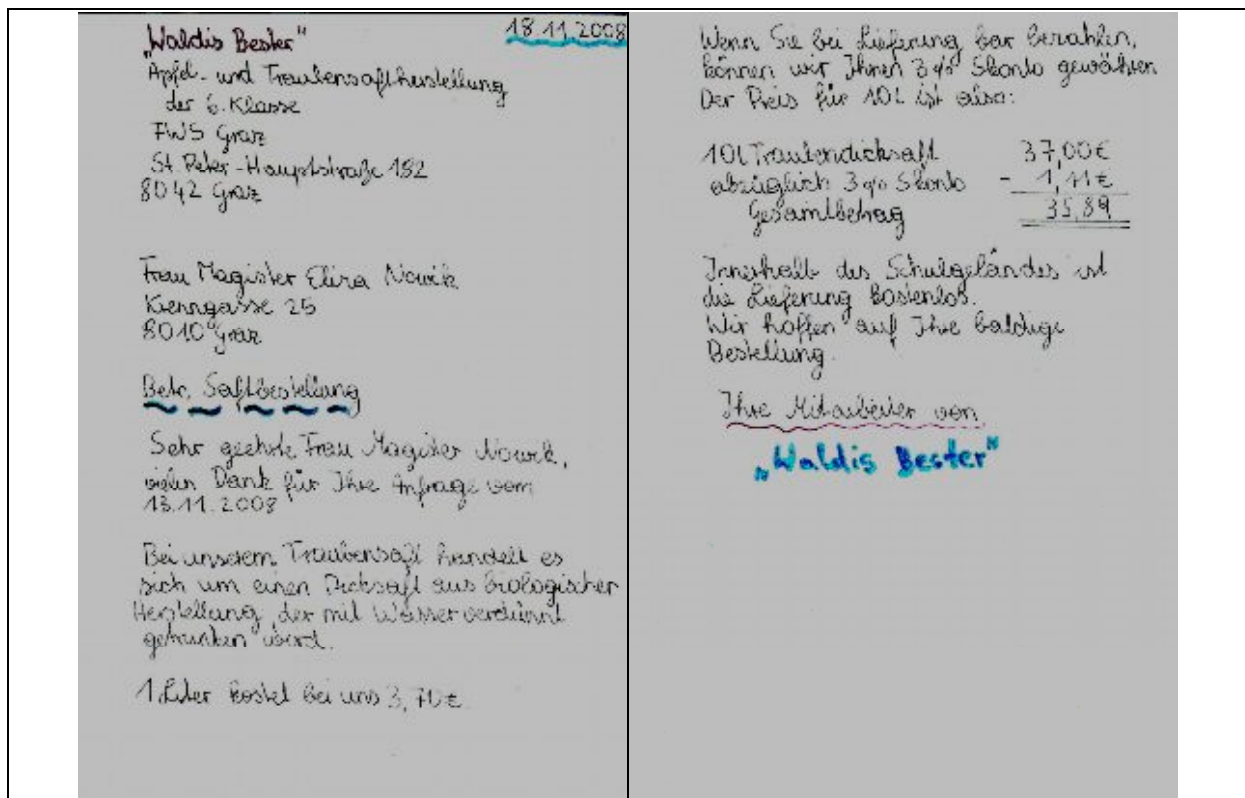 „Waldis Bester"
18.11.2008
Apfel- und Traubensaftherstellung
der 6. Klasse
FWS Graz
St. Peter-Hauptstraße 182
8042 Graz
Frau Magister Elira Nowik
Kienngasse 25
8010 Graz
Betr. Saftbestellung
Sehr geehrte Frau Magister Nowik,
vielen Dank für Ihre Anfrage vom
13.11.2008
Bei unserem Traubensaft handelt es
sich um einen Dicksaft aus biologischer
Herstellung, der mit Wasser verdünnt
getrunken wird.
1 Liter kostet bei uns 3,70€
Wenn Sie bei Lieferung bar bezahlen,
können wir Ihnen 3% Skonto gewähren
Der Preis für 10L ist also:
10L Traubendicksaft 37,00€
abzüglich 3% Skonto - 1,11€
Gesamtbetrag 35,89
Innerhalb des Schulgeländes ist
die Lieferung kostenlos.
Wir hoffen auf Ihre baldige
Bestellung.
Ihre Mitarbeiter von
„Waldis Bester"